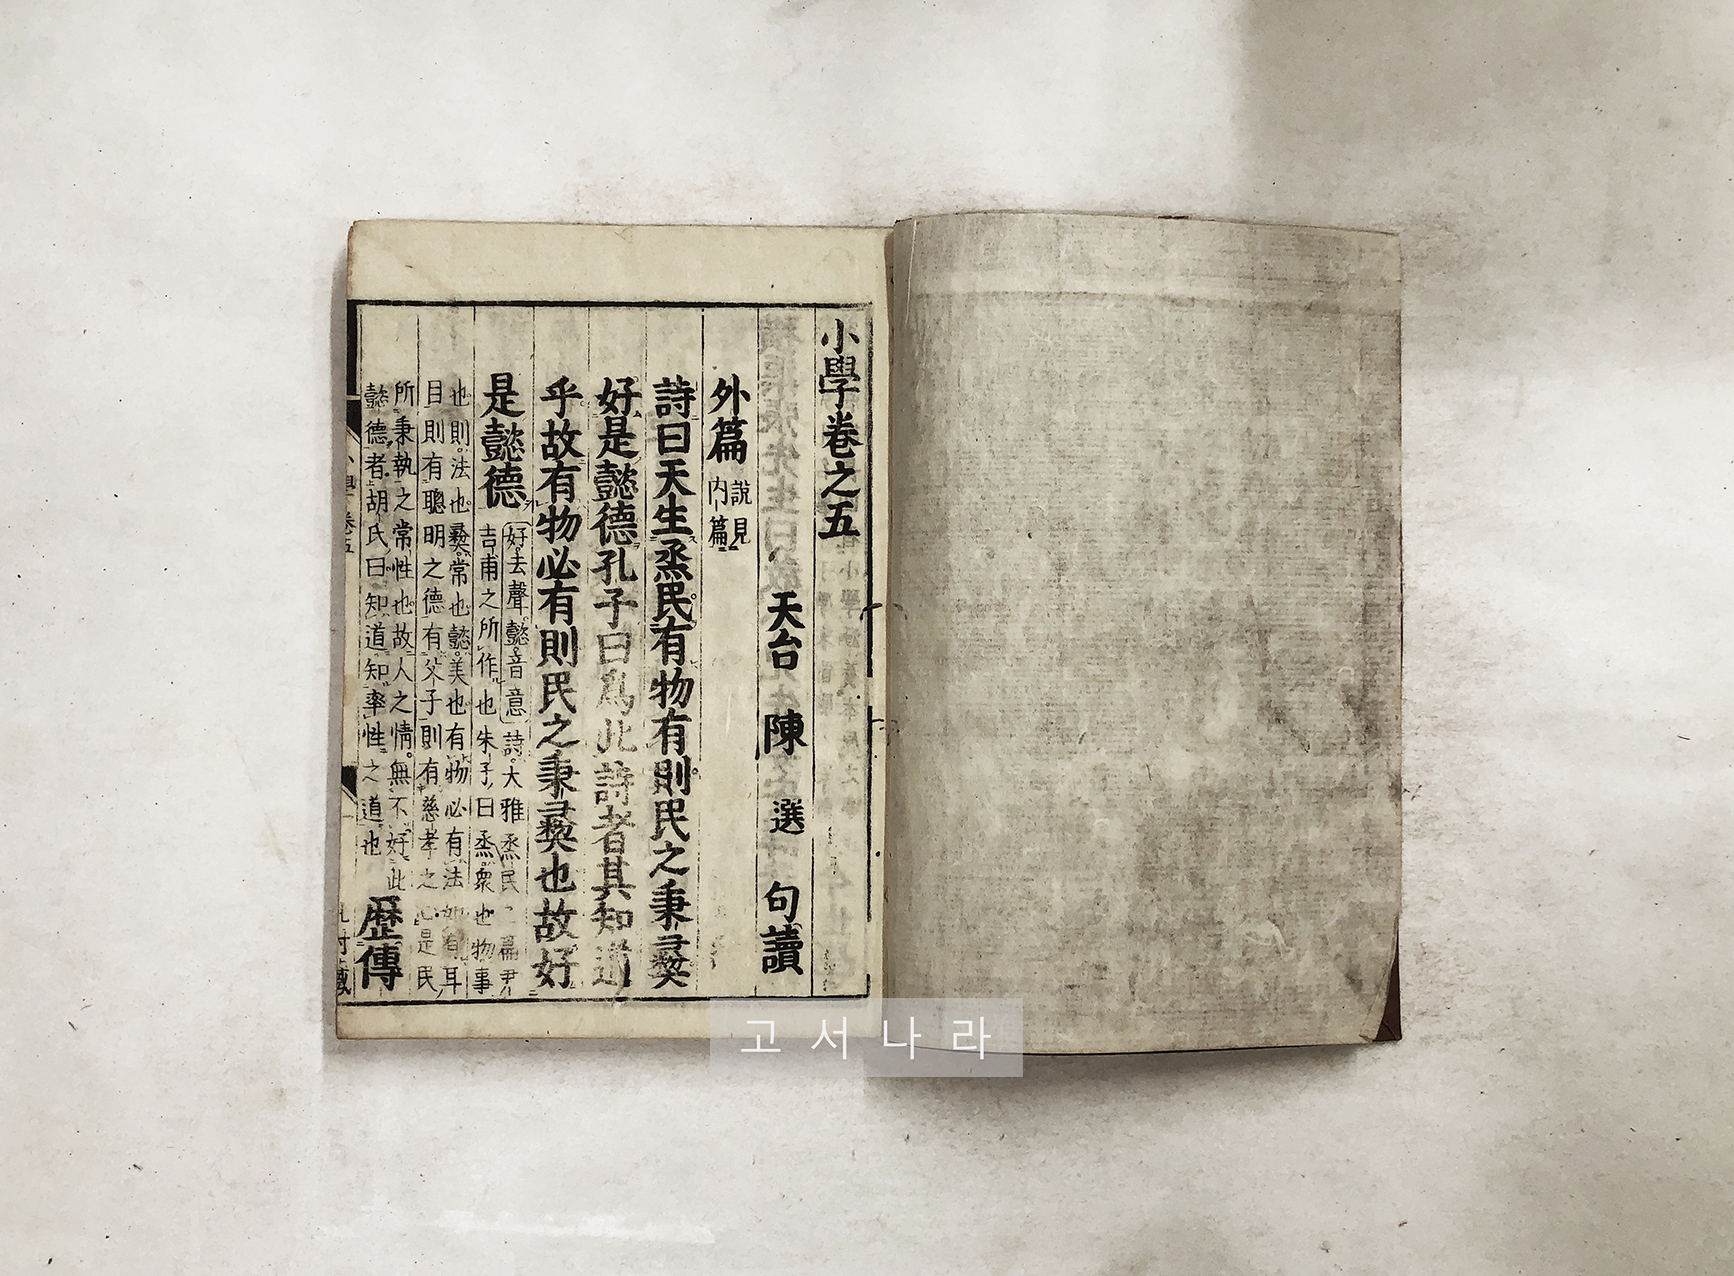 小學卷之五
天台 陳 選 句讀
外篇 說見
內篇
詩曰天生烝民有物有則民之秉彝
好是懿德孔子曰爲此詩者其知道
乎故有物必有則民之秉彝也故好
是懿德
好去聲懿音意詩大雅烝民之篇尹
吉甫之所作也朱子曰烝衆也物事
也則法也彝常也懿美也有物必有法如有耳
目則有聰明之德有父子則有慈孝之心是民
所秉執之常性也故人之情無不好此
懿德者胡氏曰知道知率性之道也
歷傳
고서나라